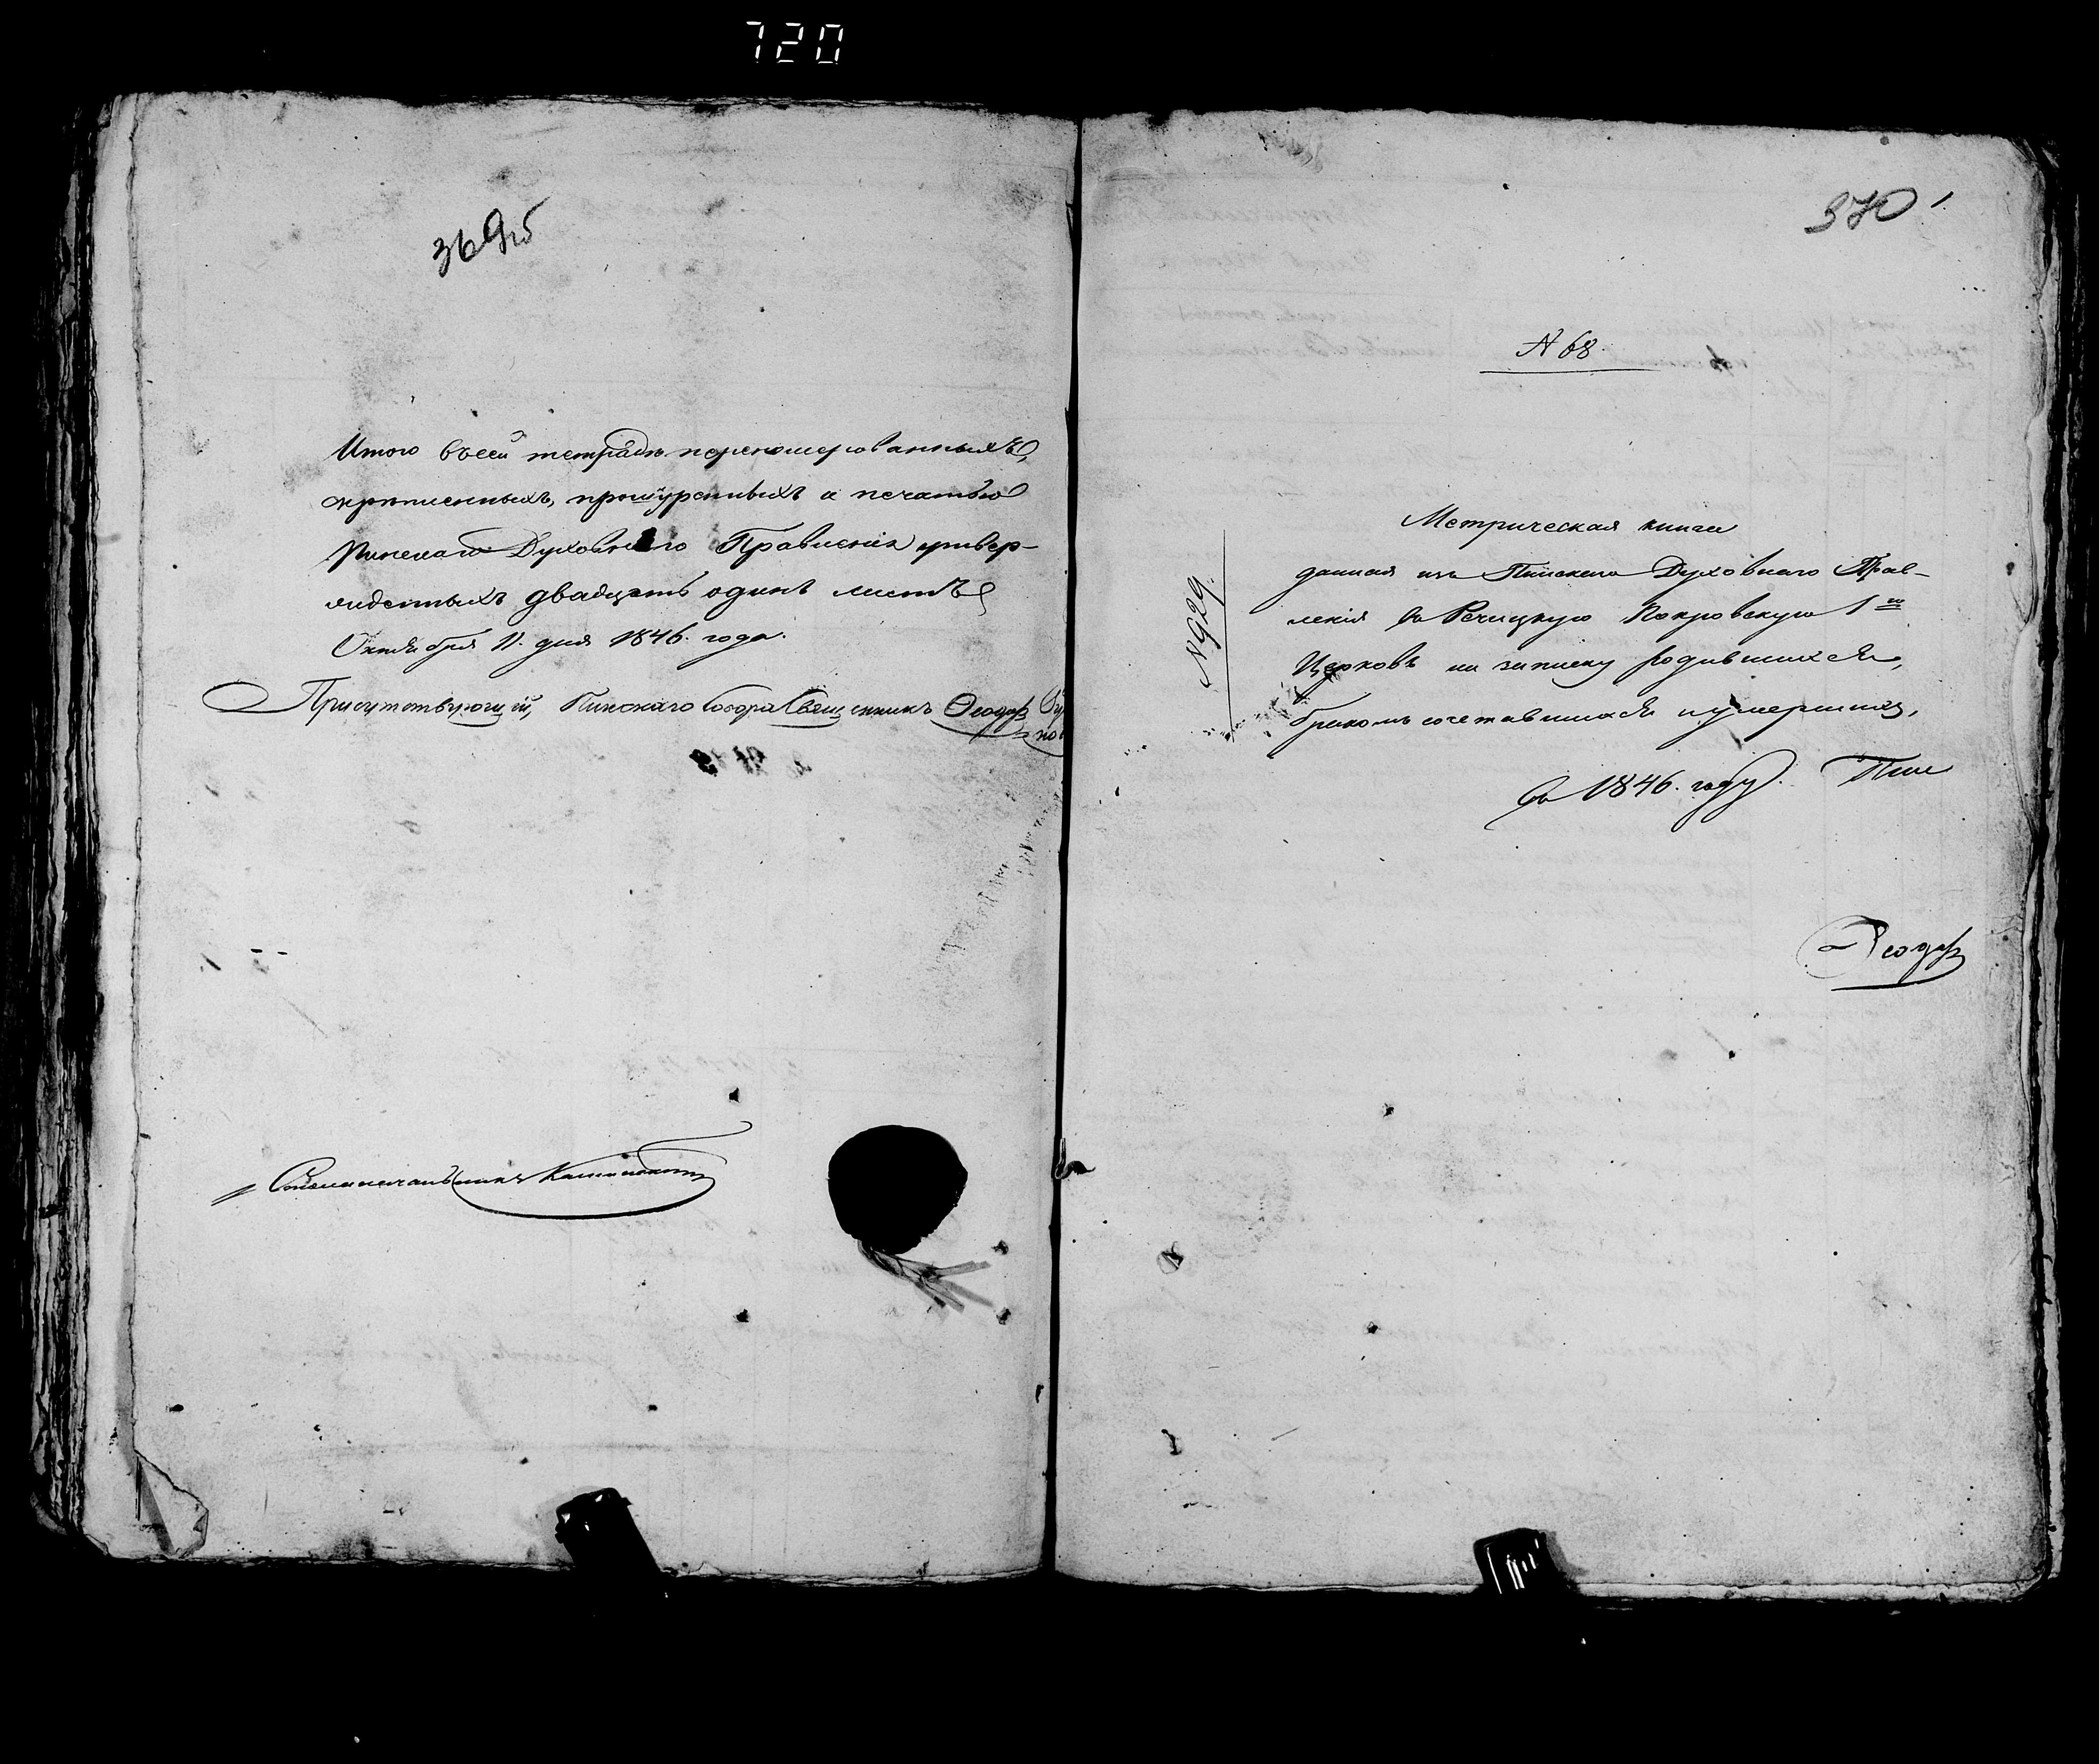 720
369об
Итого въ сей тетрадѣ перенумерованныхъ,
скрѣпленныхъ, прошнуренныхъ и печатью
Пинскаго Духовнаго Правленія утвер-
жденныхъ двадцать одинъ листъ
Октября 11. дня 1846. года.
Присутствующій, Пинскаго Собора Священникъ Ѳеодоръ
Столоначальникъ
370
1.
N 68.
N 929.
Метрическая книга
данная изъ Пинскаго Духовнаго Прав-
ленія въ Речицкую Покровскую 1ю
Церковь на записку родившихся,
бракомъ сочетавшихся и умершихъ,
въ 1846. году. Пин
Ѳеодоръ